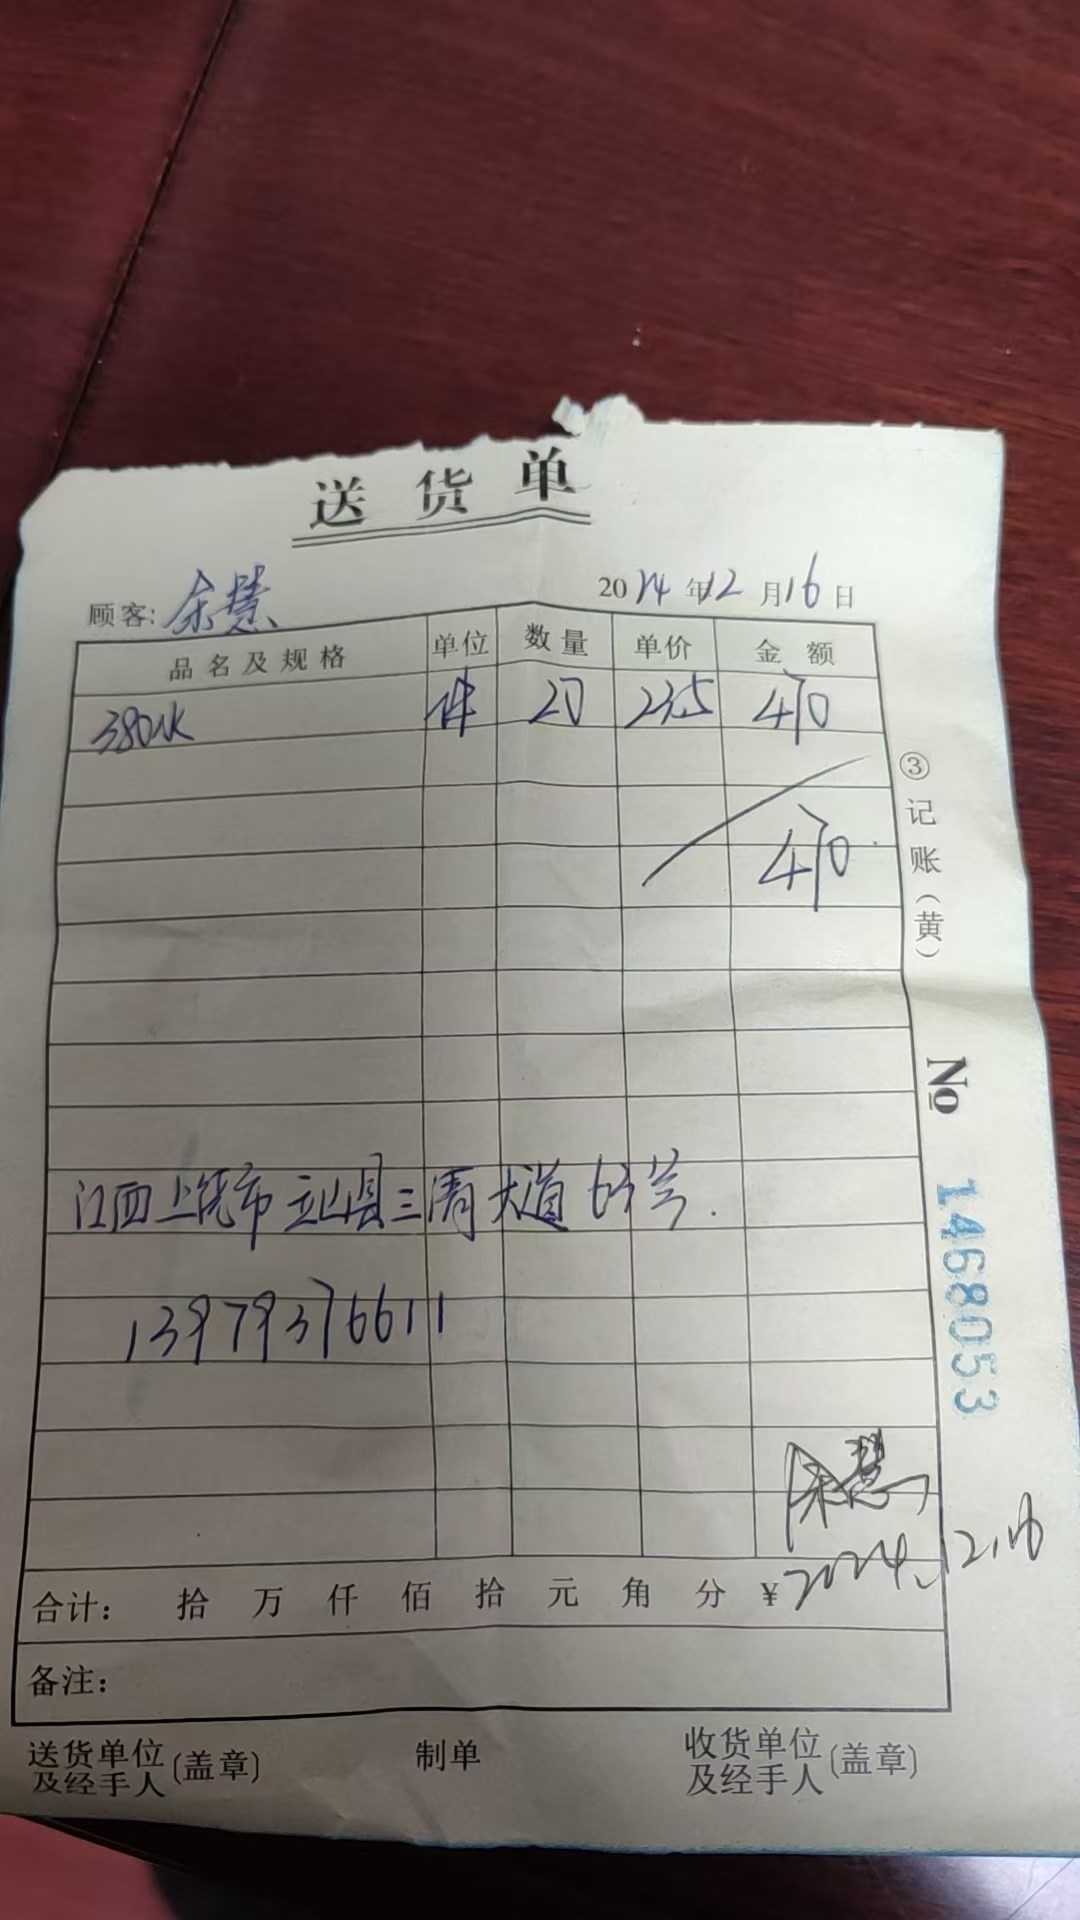 送货单
顾客: 余慧 2024年12月16日
品名及规格 单位 数量 单价 金额
380水 件 20 23.5 470
470
③记账(黄)
No 1468053
江西上饶市玉山县三清大道63号.
13979376611
余慧
2024.12.16
合计: 拾 万 仟 佰 拾 元 角 分 ¥
备注:
送货单位及经手人(盖章) 制单 收货单位及经手人(盖章)